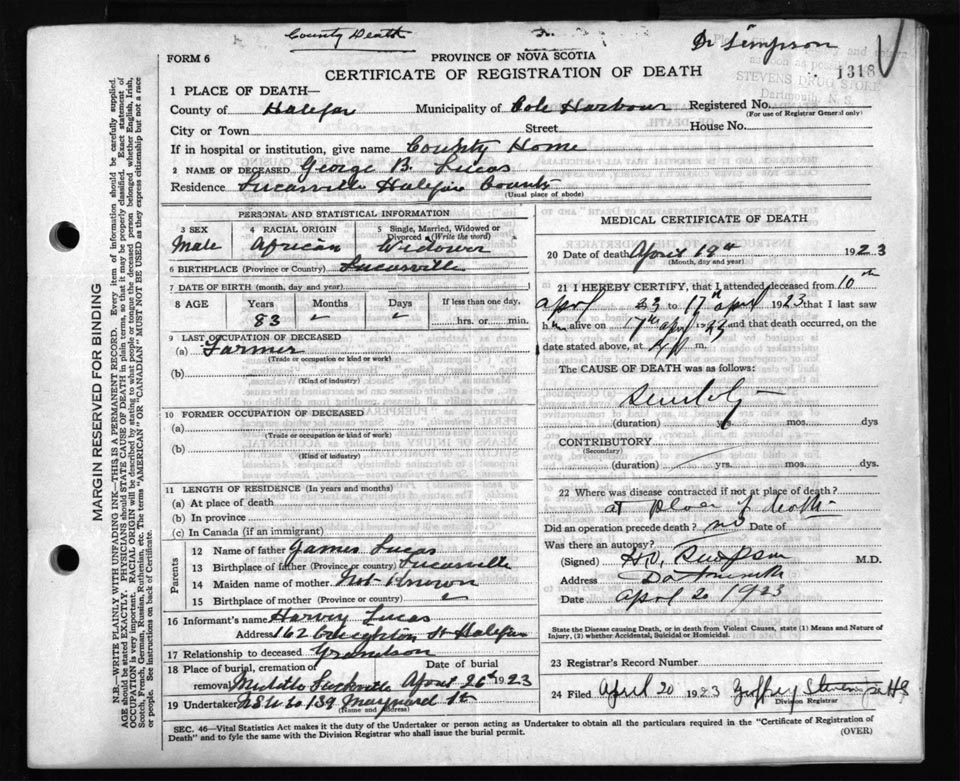 County Death
Dr Simpson
FORM 6
PROVINCE OF NOVA SCOTIA
CERTIFICATE OF REGISTRATION OF DEATH
1318
STEVENS DRUG STORE
Dartmouth, N. S.
1 PLACE OF DEATH—
County of Halifax Municipality of Cole Harbour Registered No.
(For use of Registrar General only)
City or Town Street House No.
If in hospital or institution, give name County Home
2 NAME OF DECEASED George B. Lucas
Residence Lucasville Halifax County
(Usual place of abode)
PERSONAL AND STATISTICAL INFORMATION
3 SEX
Male
4 RACIAL ORIGIN
African
5 Single, Married, Widowed or Divorced (Write the word)
Widower
6 BIRTHPLACE (Province or Country) Lucasville
7 DATE OF BIRTH (month, day and year)
8 AGE Years Months Days If less than one day,
83 " " hrs. or min.
9 LAST OCCUPATION OF DECEASED
(a) Farmer
(Trade or occupation or kind of work)
(b)
(Kind of industry)
10 FORMER OCCUPATION OF DECEASED
(a)
(Trade or occupation or kind of work)
(b)
(Kind of industry)
11 LENGTH OF RESIDENCE (In years and months)
(a) At place of death
(b) In province
(c) In Canada (if an immigrant)
Parents
12 Name of father James Lucas
13 Birthplace of father (Province or country) Lucasville
14 Maiden name of mother Not Known
15 Birthplace of mother (Province or country) "
16 Informant's name Harvy Lucas
Address 162 Creighton St Halifax
17 Relationship to deceased Grandson
18 Place of burial, cremation or removal Middle Sackville
Date of burial April 26th 1923
19 Undertaker 139 Maynard St
(Name and address)
MEDICAL CERTIFICATE OF DEATH
20 Date of death April 19th 1923
(Month, day and year)
21 I HEREBY CERTIFY, that I attended deceased from 10th
April 23 to 17th April 1923 that I last saw
him alive on 17th April 1923 and that death occurred, on
date stated above, at m.
The CAUSE OF DEATH was as follows:
Senility
(duration) yrs. mos. dys
CONTRIBUTORY
(Secondary)
(duration) yrs. mos. dys.
22 Where was disease contracted if not at place of death?
at place of death
Did an operation precede death? no Date of
Was there an autopsy?
(Signed) Simpson M.D.
Address Dartmouth
Date April 20 1923
State the Disease causing Death, or in death from Violent Causes, state (1) Means and Nature of Injury, (2) whether Accidental, Suicidal or Homicidal.
23 Registrar's Record Number
24 Filed April 20 1923 Stevens
Division Registrar
SEC. 46—Vital Statistics Act makes it the duty of the Undertaker or person acting as Undertaker to obtain all the particulars required in the "Certificate of Registration of
Death" and to fyle the same with the Division Registrar who shall issue the burial permit. (OVER)
MARGIN RESERVED FOR BINDING
N. B.—WRITE PLAINLY WITH UNFADING INK—THIS IS A PERMANENT RECORD. Every item of information should be carefully supplied.
AGE should be stated EXACTLY. PHYSICIANS should STATE CAUSE OF DEATH in plain terms, so that it may be properly classified. Exact statement of
OCCUPATION is very important. RACIAL ORIGIN will be described by stating to what people or tongue the deceased person belonged whether English, Irish,
Scotch, French, German, Russian, Ruthenian, etc. The terms "AMERICAN" OR "CANADIAN" MUST NOT BE USED as they express citizenship but not a race
or people. See instructions on back of Certificate.